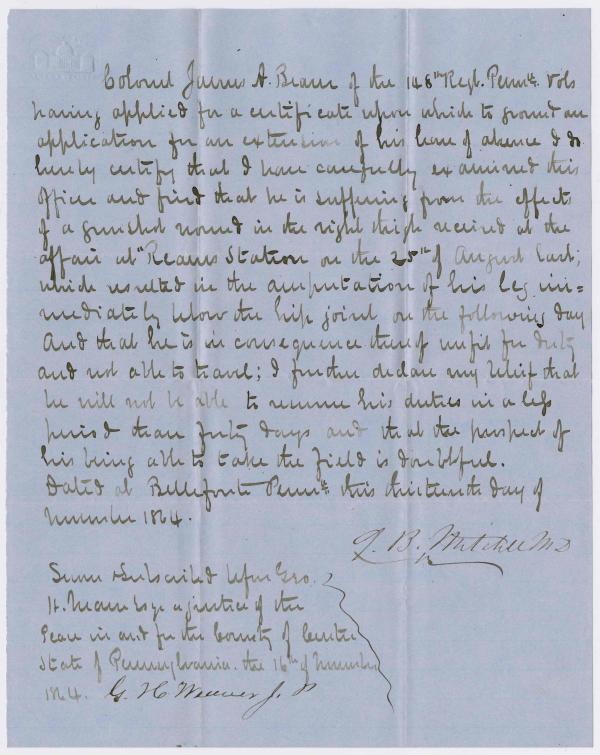 Colonel James A. Beaver of the 148th Regt. Pennᵃ. Vols
having applied for a certificate upon which to ground an
application for an extension of his leave of absence I do
hereby certify that I have carefully examined this
Officer and find that he is suffering from the effects
of a gunshot wound in the right thigh received at the
affair at "Reams Station on the 25th of August last;
which resulted in the amputation of his leg im=
mediately below the hip joint on the following day
And that he is in consequence thereof unfit for duty
and not able to travel; I further declare my belief that
he will not be able to resume his duties in a less
period than forty days and that the prospect of
his being able to take the field is doubtful.
Dated at Bellefonte Pennᵃ this thirteenth day of
November 1864.
B. Mitchell M D
Sworn & Subscribed before Geo.
W. Esqr a justice of the
Peace in and for the County of Centre
State of Pennsylvania. the 16th of November
1864. G. W. J. P